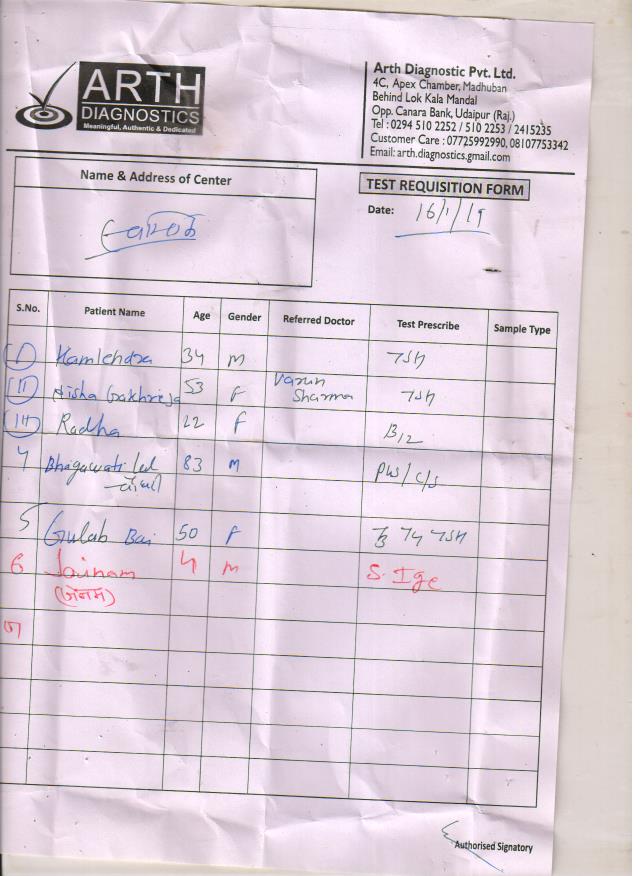 ARTH
DIAGNOSTICS
Meaningful, Authentic & Dedicated
Arth Diagnostic Pvt. Ltd.
4C, Apex Chamber, Madhuban
Behind Lok Kala Mandal
Opp. Canara Bank, Udaipur (Raj.)
Tel : 0294 510 2252 / 510 2253 / 2415235
Customer Care : 07725992990, 08107753342
Email: arth.diagnostics.gmail.com
Name & Address of Center
TEST REQUISITION FORM
Date: 16/1/19
S.No. Patient Name Age Gender Referred Doctor Test Prescribe Sample Type
I Kamlendra 34 M TSH
II Nisha Gakhreja 53 F Varun Sharma TSH
III Radha 22 F B12
4 Bhagawati Lal 83 M PUS/C/S
5 Gulab Bai 50 F T3 T4 TSH
6 Jainam 4 M S. IgE
(जैनम)
7
Authorised Signatory